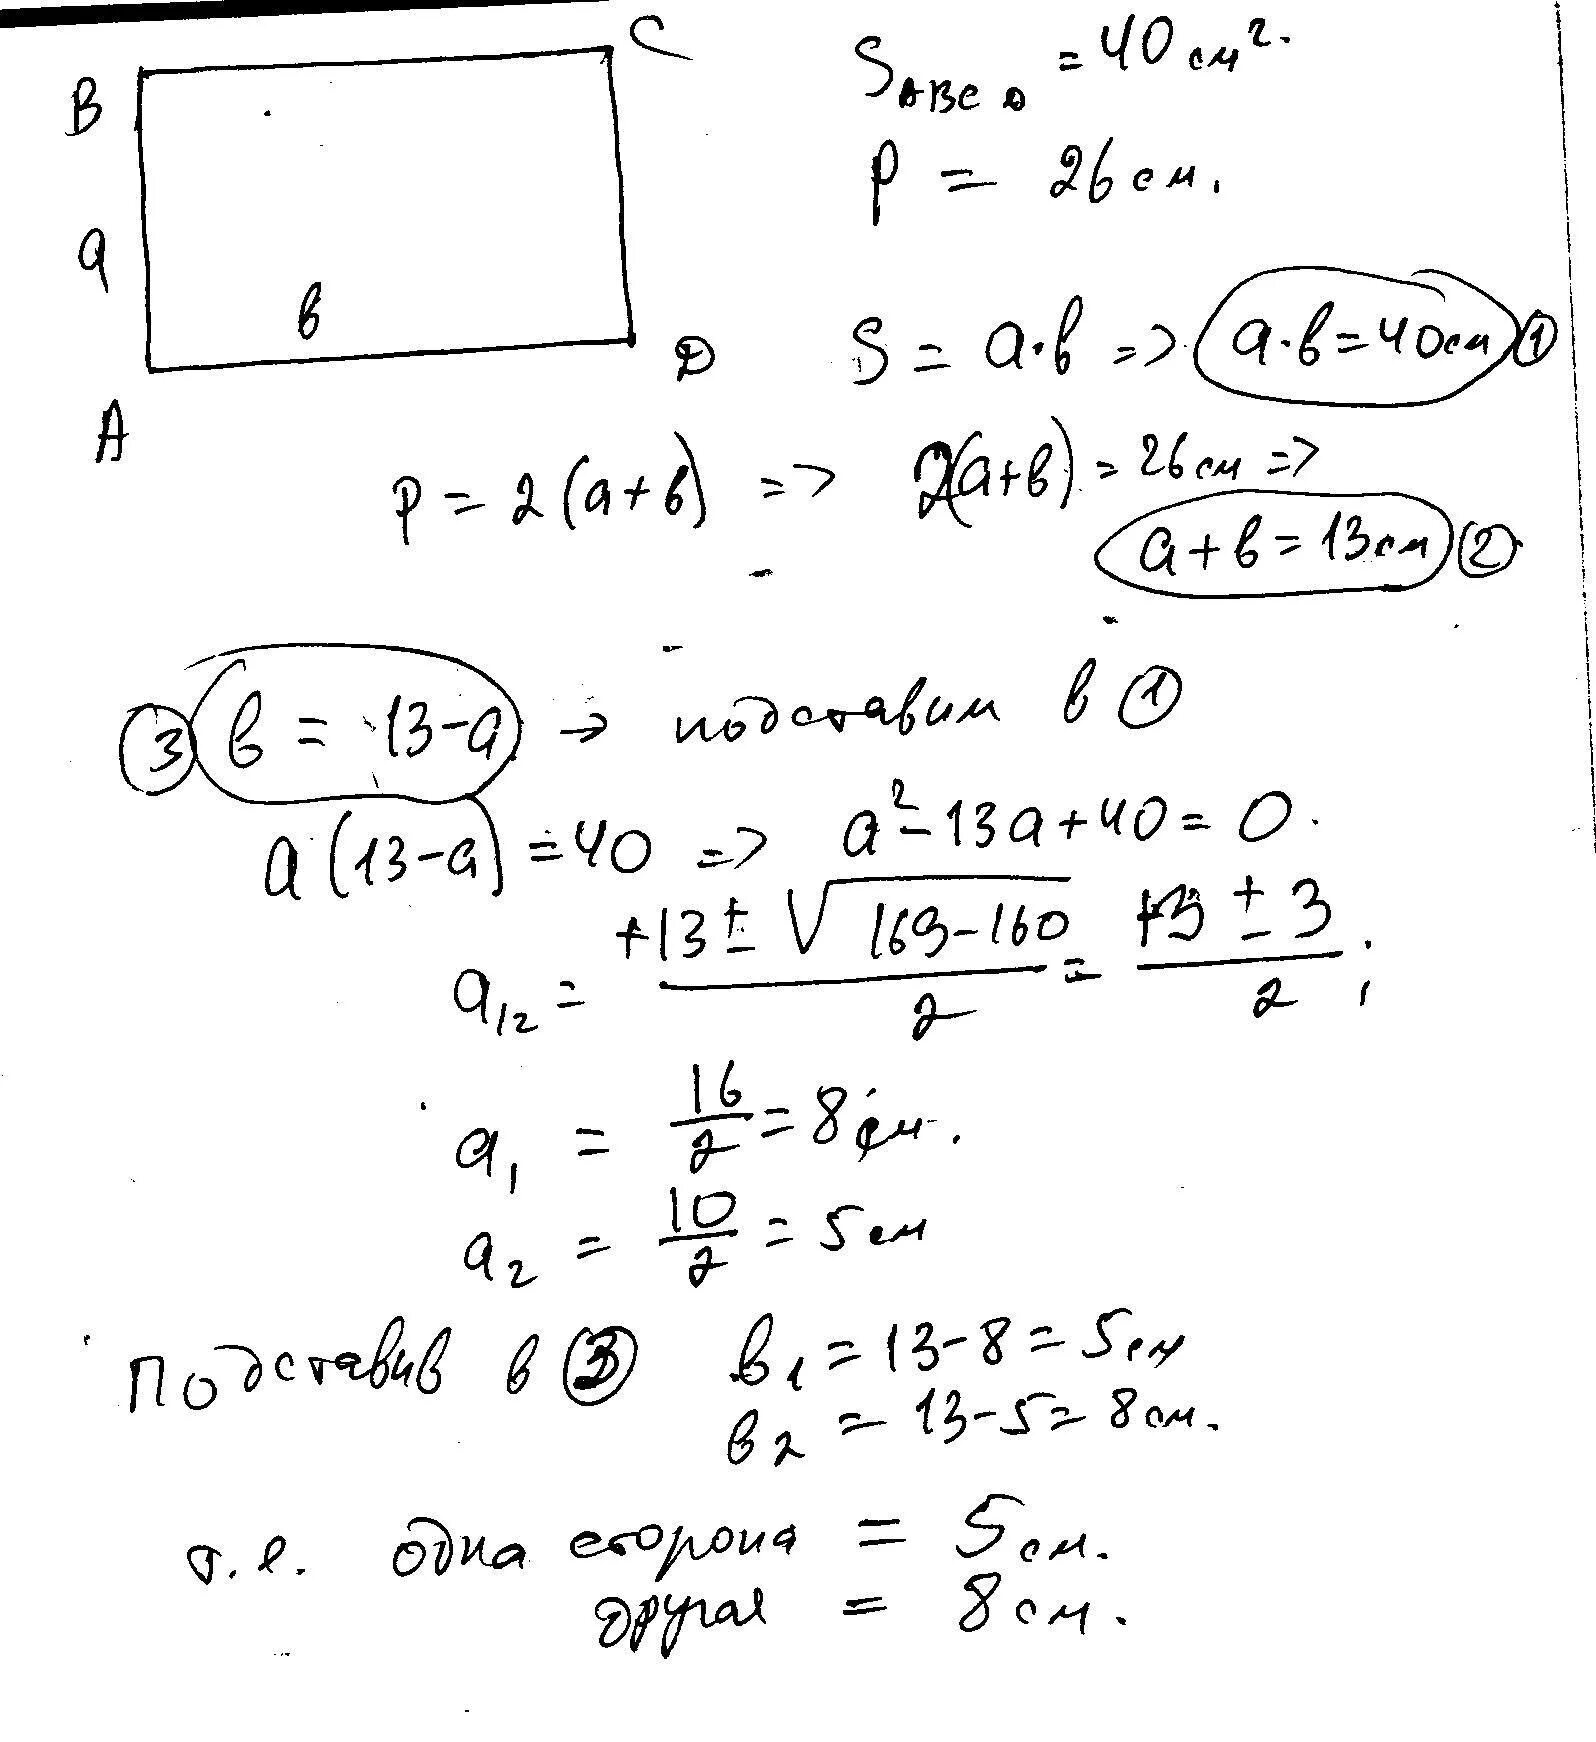 C
B
a
в
A
D
S ABCD = 40 см².
P = 26 см.
S = a·в => a·в = 40 см ①
P = 2(a+в) => 2(a+в) = 26 см =>
a+в = 13 см ②
③ в = 13-a → подставим в ①
a(13-a) = 40 => a² - 13a + 40 = 0.
a₁₂ = (+13 ± √(169-160))/2 = (13 ± 3)/2;
a₁ = 16/2 = 8 см.
a₂ = 10/2 = 5 см
Подставив в ③ в₁ = 13-8 = 5 см
в₂ = 13-5 = 8 см.
т.е. одна сторона = 5 см.
другая = 8 см.